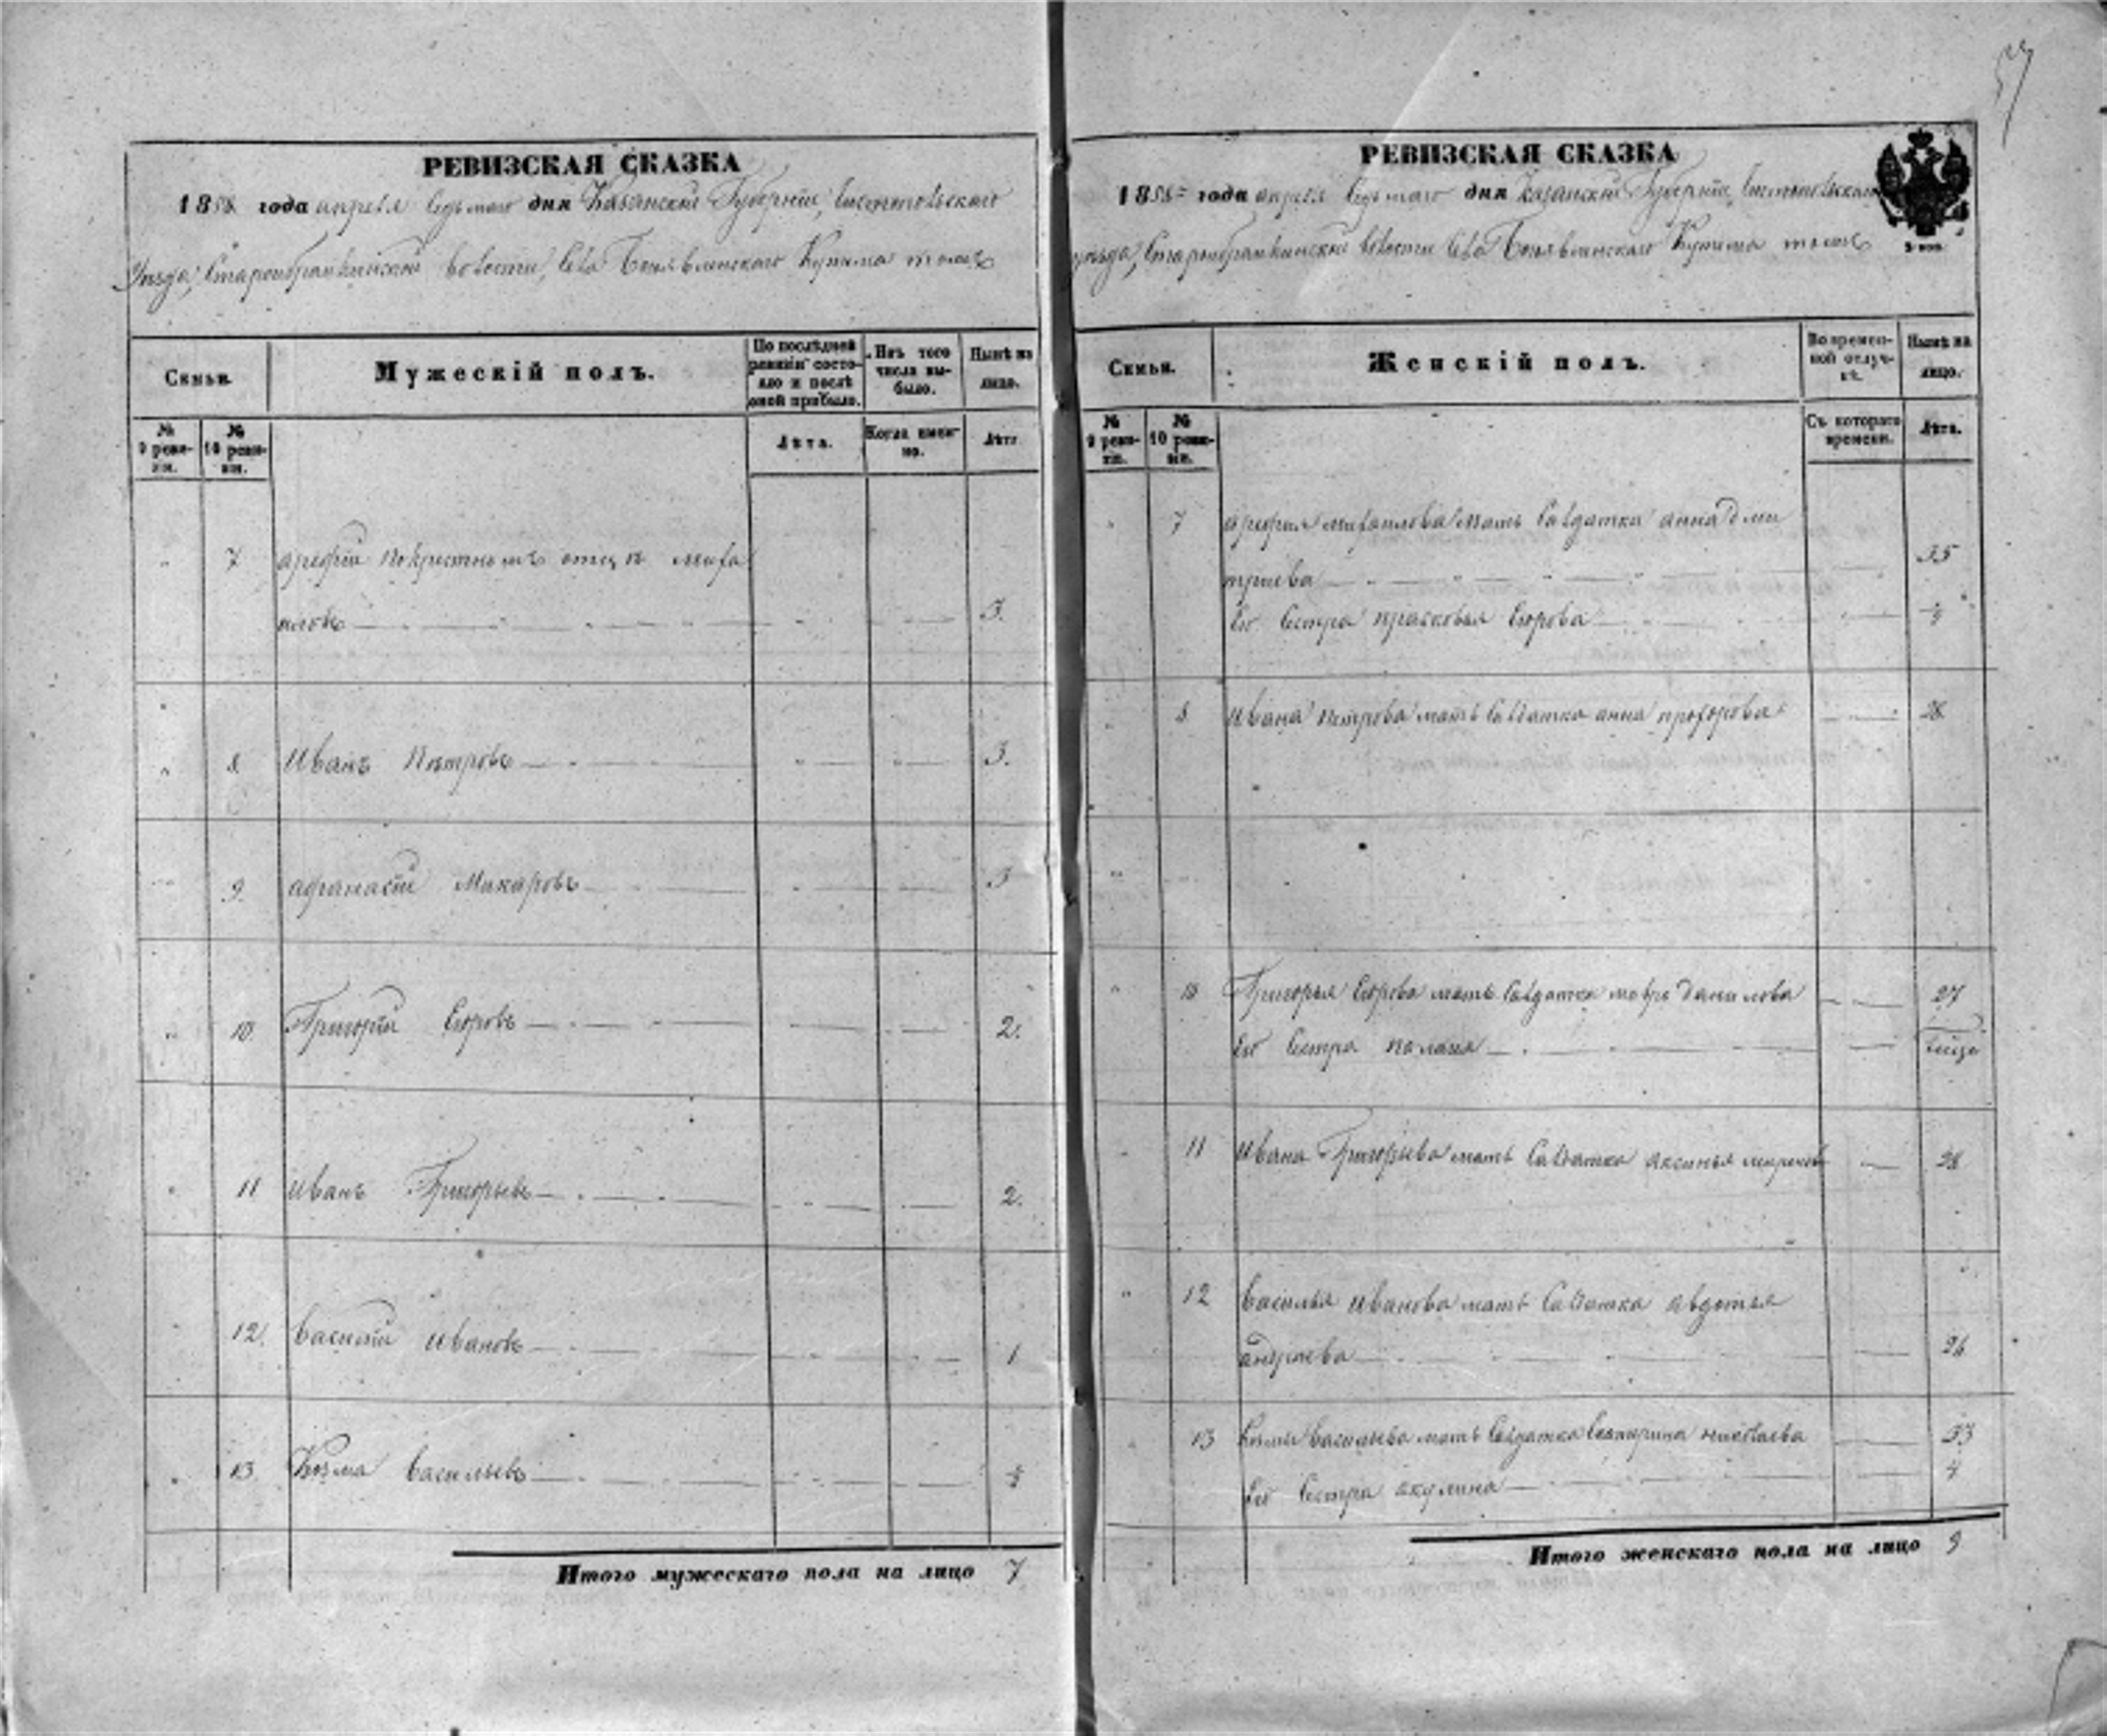 57
РЕВИЗСКАЯ СКАЗКА
1858 года апреля седьмаго дня Казанской Губернии, Чистопольскаго
Уезда, Староибрайкинской волости, села Богоявленскаго Кутема тожъ
Семьи.
Мужескій полъ.
По послѣдней ревизіи состояло и послѣ оной прибыло.
Изъ того числа выбыло.
Нынѣ на лицо.
№ 9 ревизіи.
№ 10 ревизіи.
Лѣта.
Когда именно.
Лѣта.
7 арефій покрестному отцу миха
иловъ 3.
8. Иванъ Петровъ 3.
9. афанасій Макаровъ 3
10. Григорій Егоровъ 2.
11 Иванъ Григорьевъ 2.
12. Василій Ивановъ 1
13. Козма Васильевъ
Итого мужескаго пола на лицо 7
РЕВИЗСКАЯ СКАЗКА
1858 года апреля седьмаго дня Казанской Губернии, Чистопольскаго
уезда, Староибрайкинской волости села Богоявленскаго Кутема тожъ
Семьи.
Женскій полъ.
Во временной отлучкѣ.
Нынѣ на лицо.
№ 9 ревизіи.
№ 10 ревизіи.
Съ котораго времени.
Лѣта.
7 арефия михаилова мать Салдатка анна дми
триева 35
Его Сестра прасковья Егорова
8 Ивана петрова мать Салдатка анна прохорова 28
10 Григорья Егорова мать Салдатка мавра данилова 27
Его Сестра палагея
11 Ивана Григорьева мать Салдатка аксинья миронова 28
12 Василья Иванова мать Салдатка авдотья
андреева 26
13 Козмы Васильева мать Салдатка Екатирина николаева 33
Его Сестра акулина 4
Итого женскаго пола на лицо 9